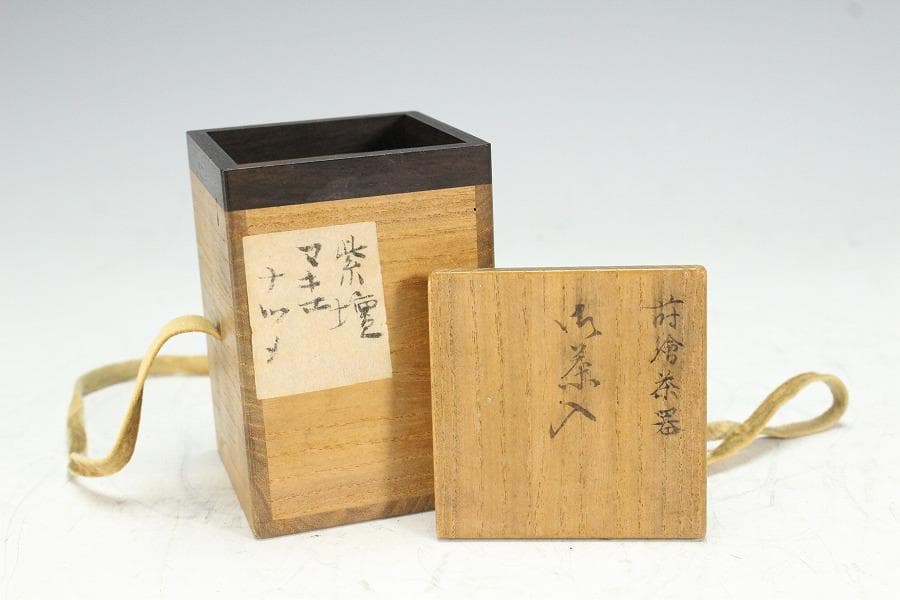 紫壇
マキエ
ナツメ
蒔繪茶器
御茶入